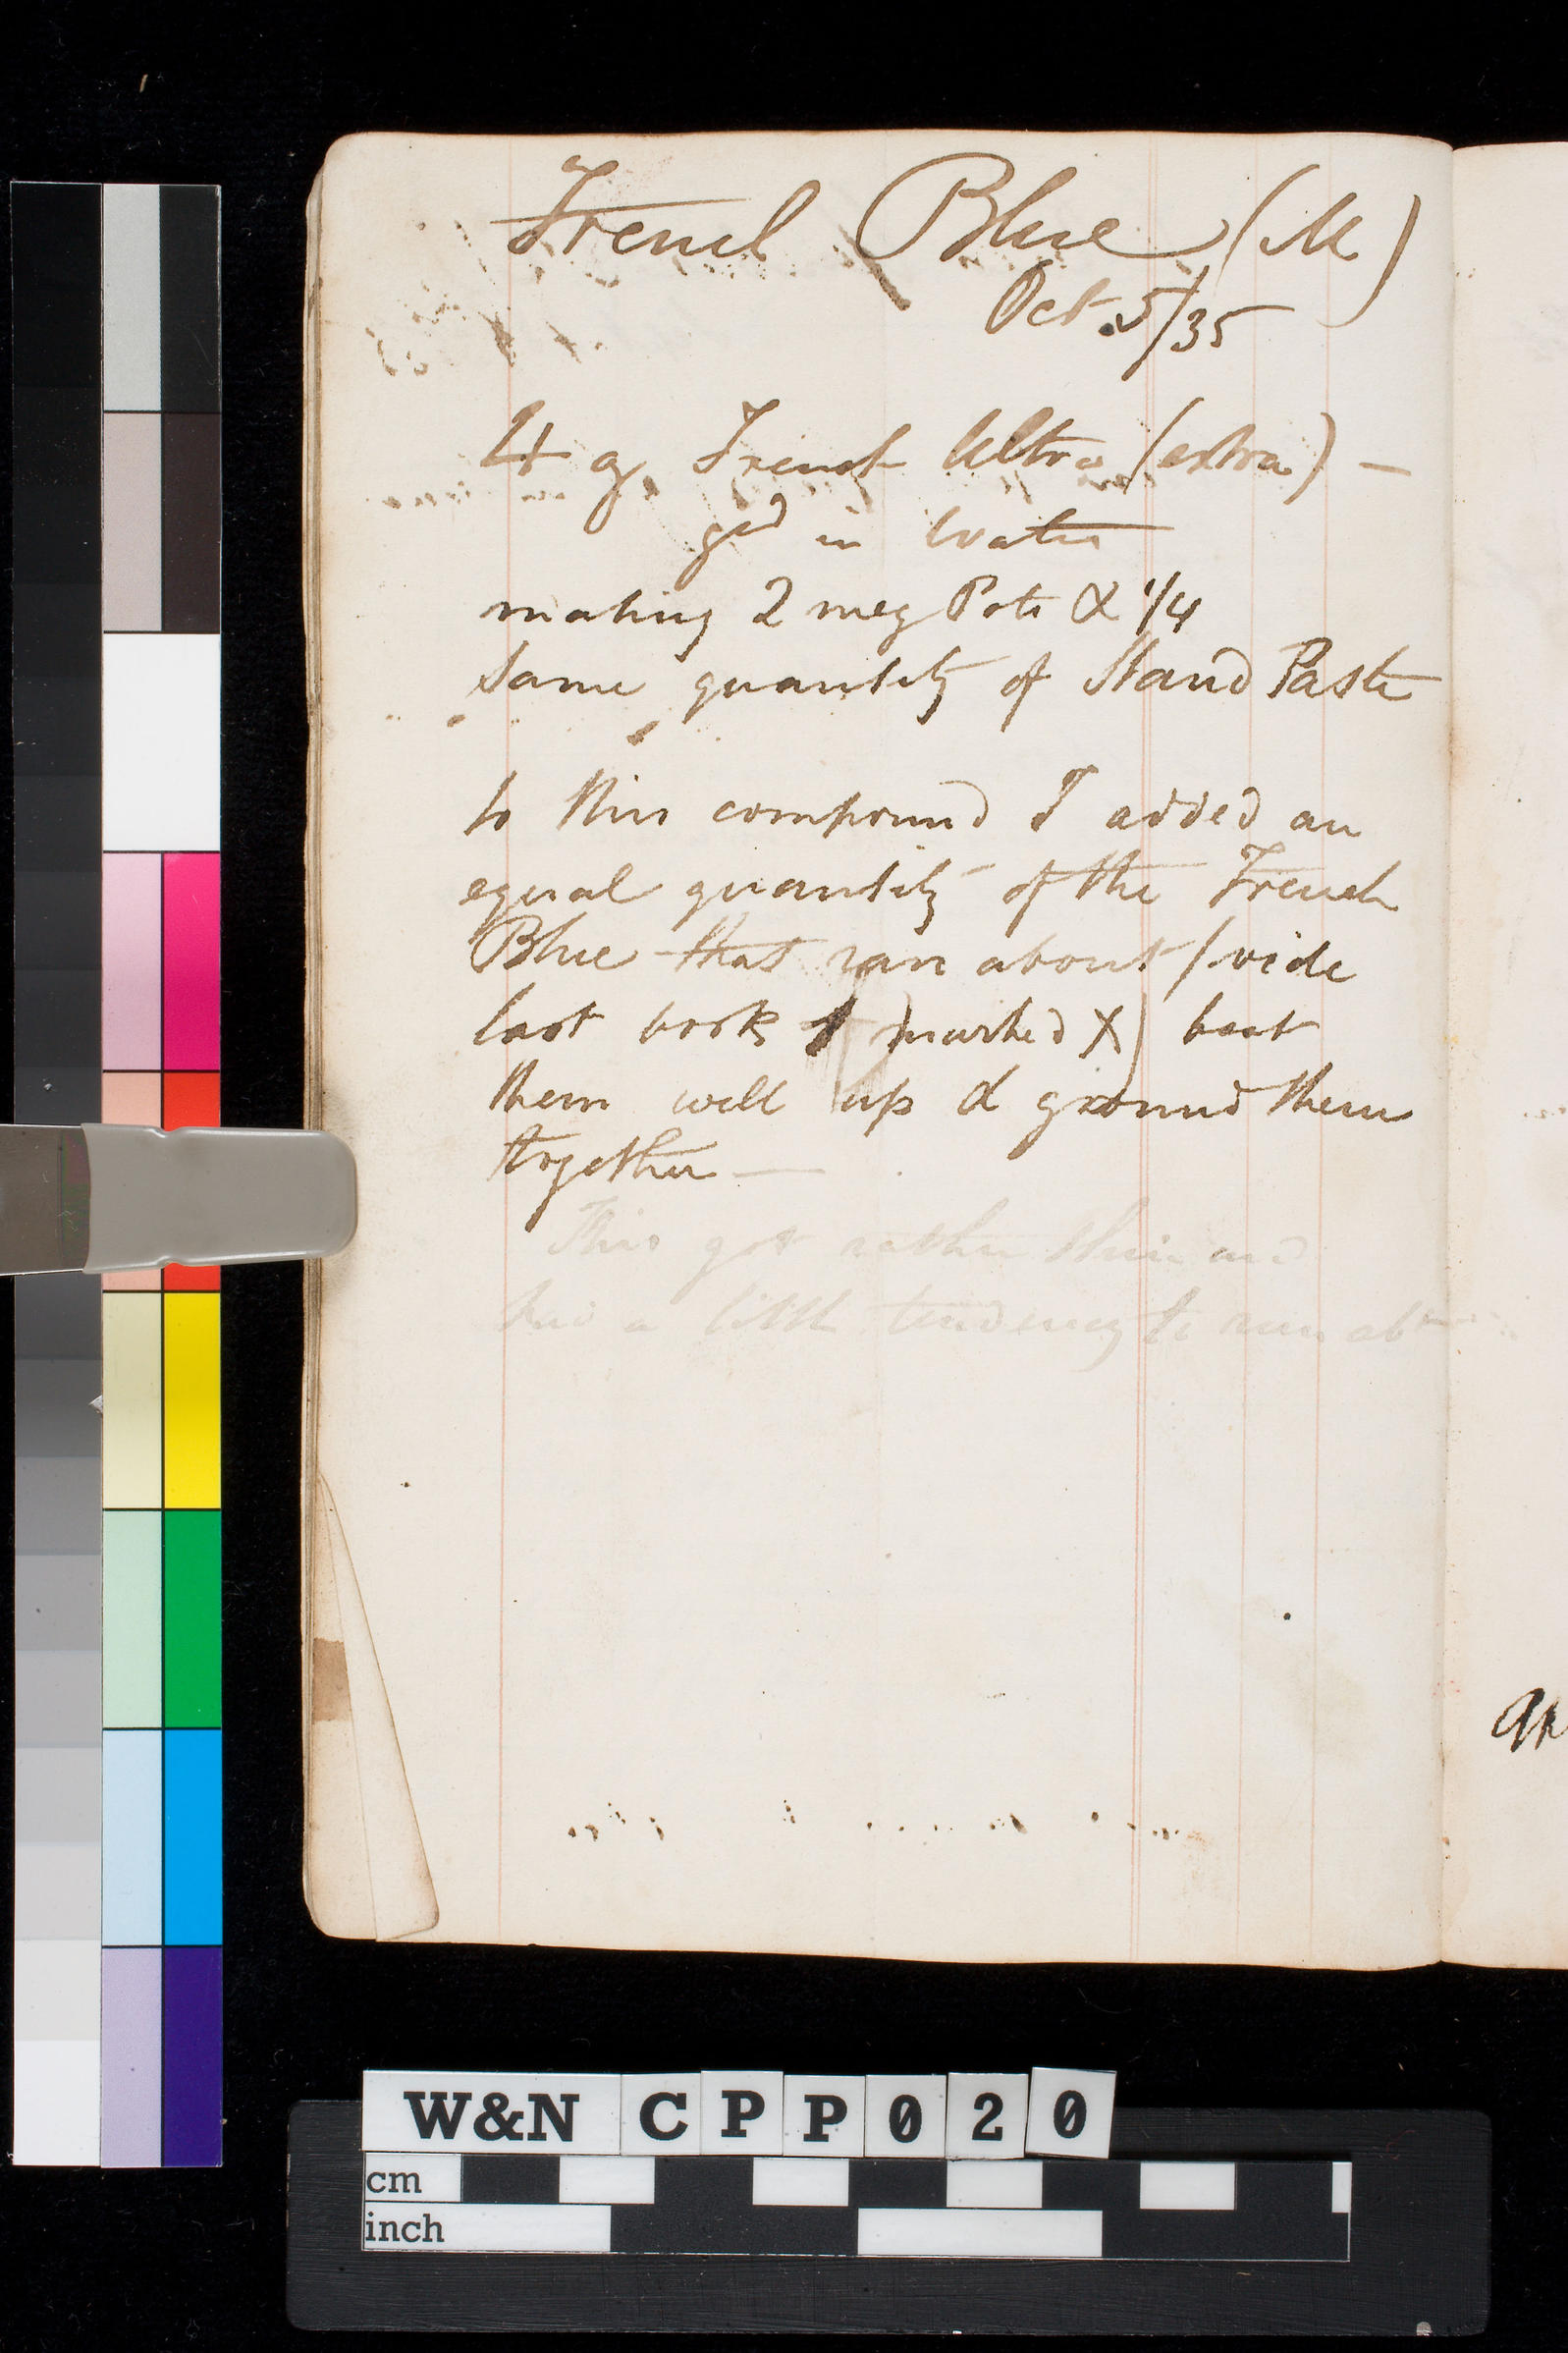 French Blue (M)
Oct. 5/35
4 oz French Ultra (extra) —
gd in Water
making 2 meg Pots & 1/4
Same quantity of Stand Paste
to this compound I added an
equal quantity of the French
Blue that ran about (vide
last book marked X) beat
them well up & ground them
together —
This got rather thin and
had a little tendency to run abt
W&N CPP020
cm
inch